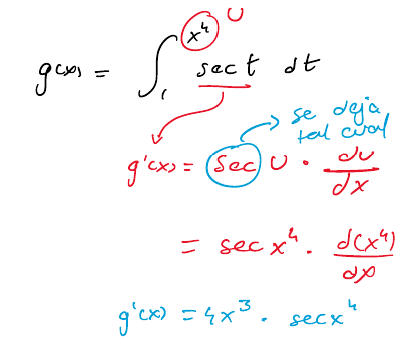 g(x) = ∫₁^(x⁴) sec t dt
U
se deja
tal cual
g'(x) = sec U · dU/dx
= sec x⁴ · d(x⁴)/dx
g'(x) = 4x³ · sec x⁴